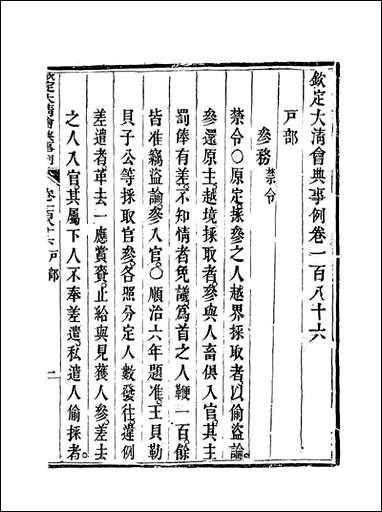 欽定大清會典事例卷一百八十六
戸部
參務禁令
禁令○原定採參之人越界採取者以偷盜論
參還原主越境採取者參與人畜俱入官其主
罰俸有差不知情者免議為首之人鞭一百餘
皆准竊盜論參入官○順治六年題准王貝勒
貝子公等採取官參各照分定人數發往違例
差遣者革去一應賞賚止給與見獲人參差去
之人入官其屬下人不奉差遣私遣人偷採者
欽定大清會典事例
卷一百八十六 戸部
一